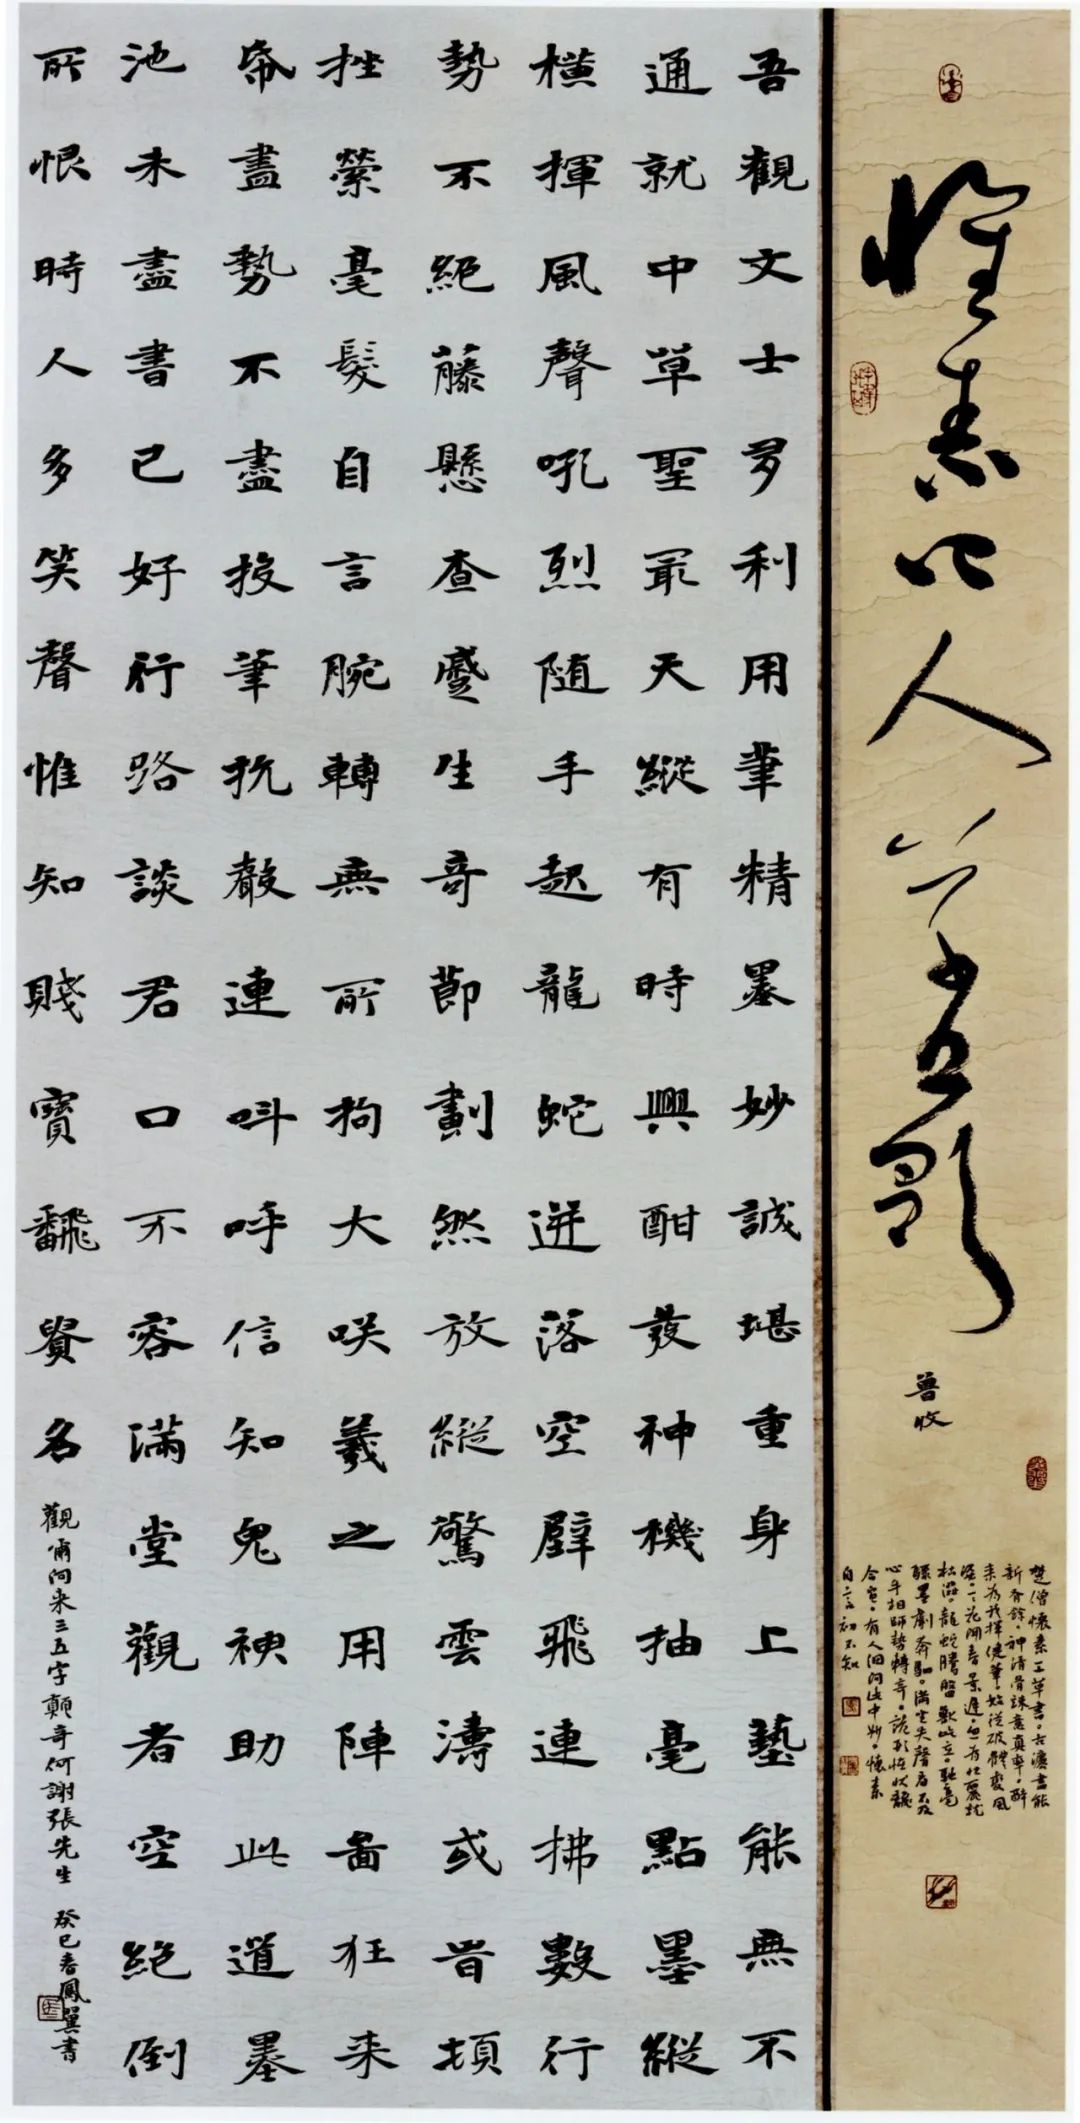 懷素上人草書歌
魯收
楚僧懷素工草書。古法盡能
新有餘。神清骨竦意真率。醉
來為我揮健筆。始從破體變風
姿。一一花開春景遲。忽為壯麗就
枯澀。龍蛇騰盤獸屹立。馳毫
驟墨劇奔駟。滿坐失聲看不及
心手相師勢轉奇。詭形怪狀翻
合宜。有人細問此中妙。懷素
自言初不知
吾觀文士多利用筆精墨妙誠堪重身上藝能無不
通就中草聖最天縱有時興酣發神機抽毫點墨縱
橫揮風聲吼烈随手起龍蛇迸落空壁飛連拂數行
勢不絕藤懸查蹙生奇節劃然放縱驚雲濤或旹頓
挫縈毫髮自言腕轉無所拘大咲羲之用陣圖狂来
帋盡勢不盡投筆抗聲連叫呼信知鬼神助此道墨
池未盡書已好行路談君口不容滿堂觀者空絕倒
所恨時人多笑聲惟知賤實翻貴名
觀爾向来三五字顛奇何謝張先生 癸巳春鳳翼書